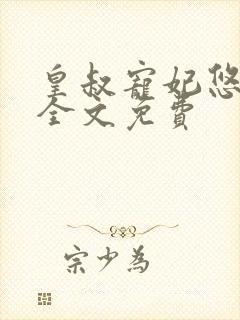 皇叔寵妃悠
全文免費
宗少為